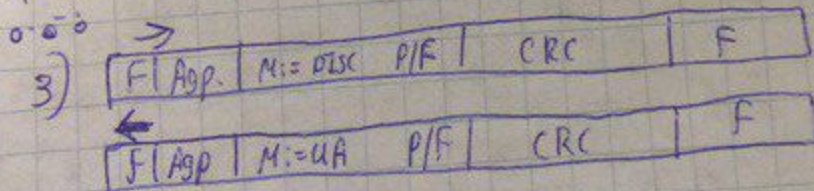 3) F | Адр. | M:= DISC P/F | CRC | F
F | Адр | M:=UA P/F | CRC | F